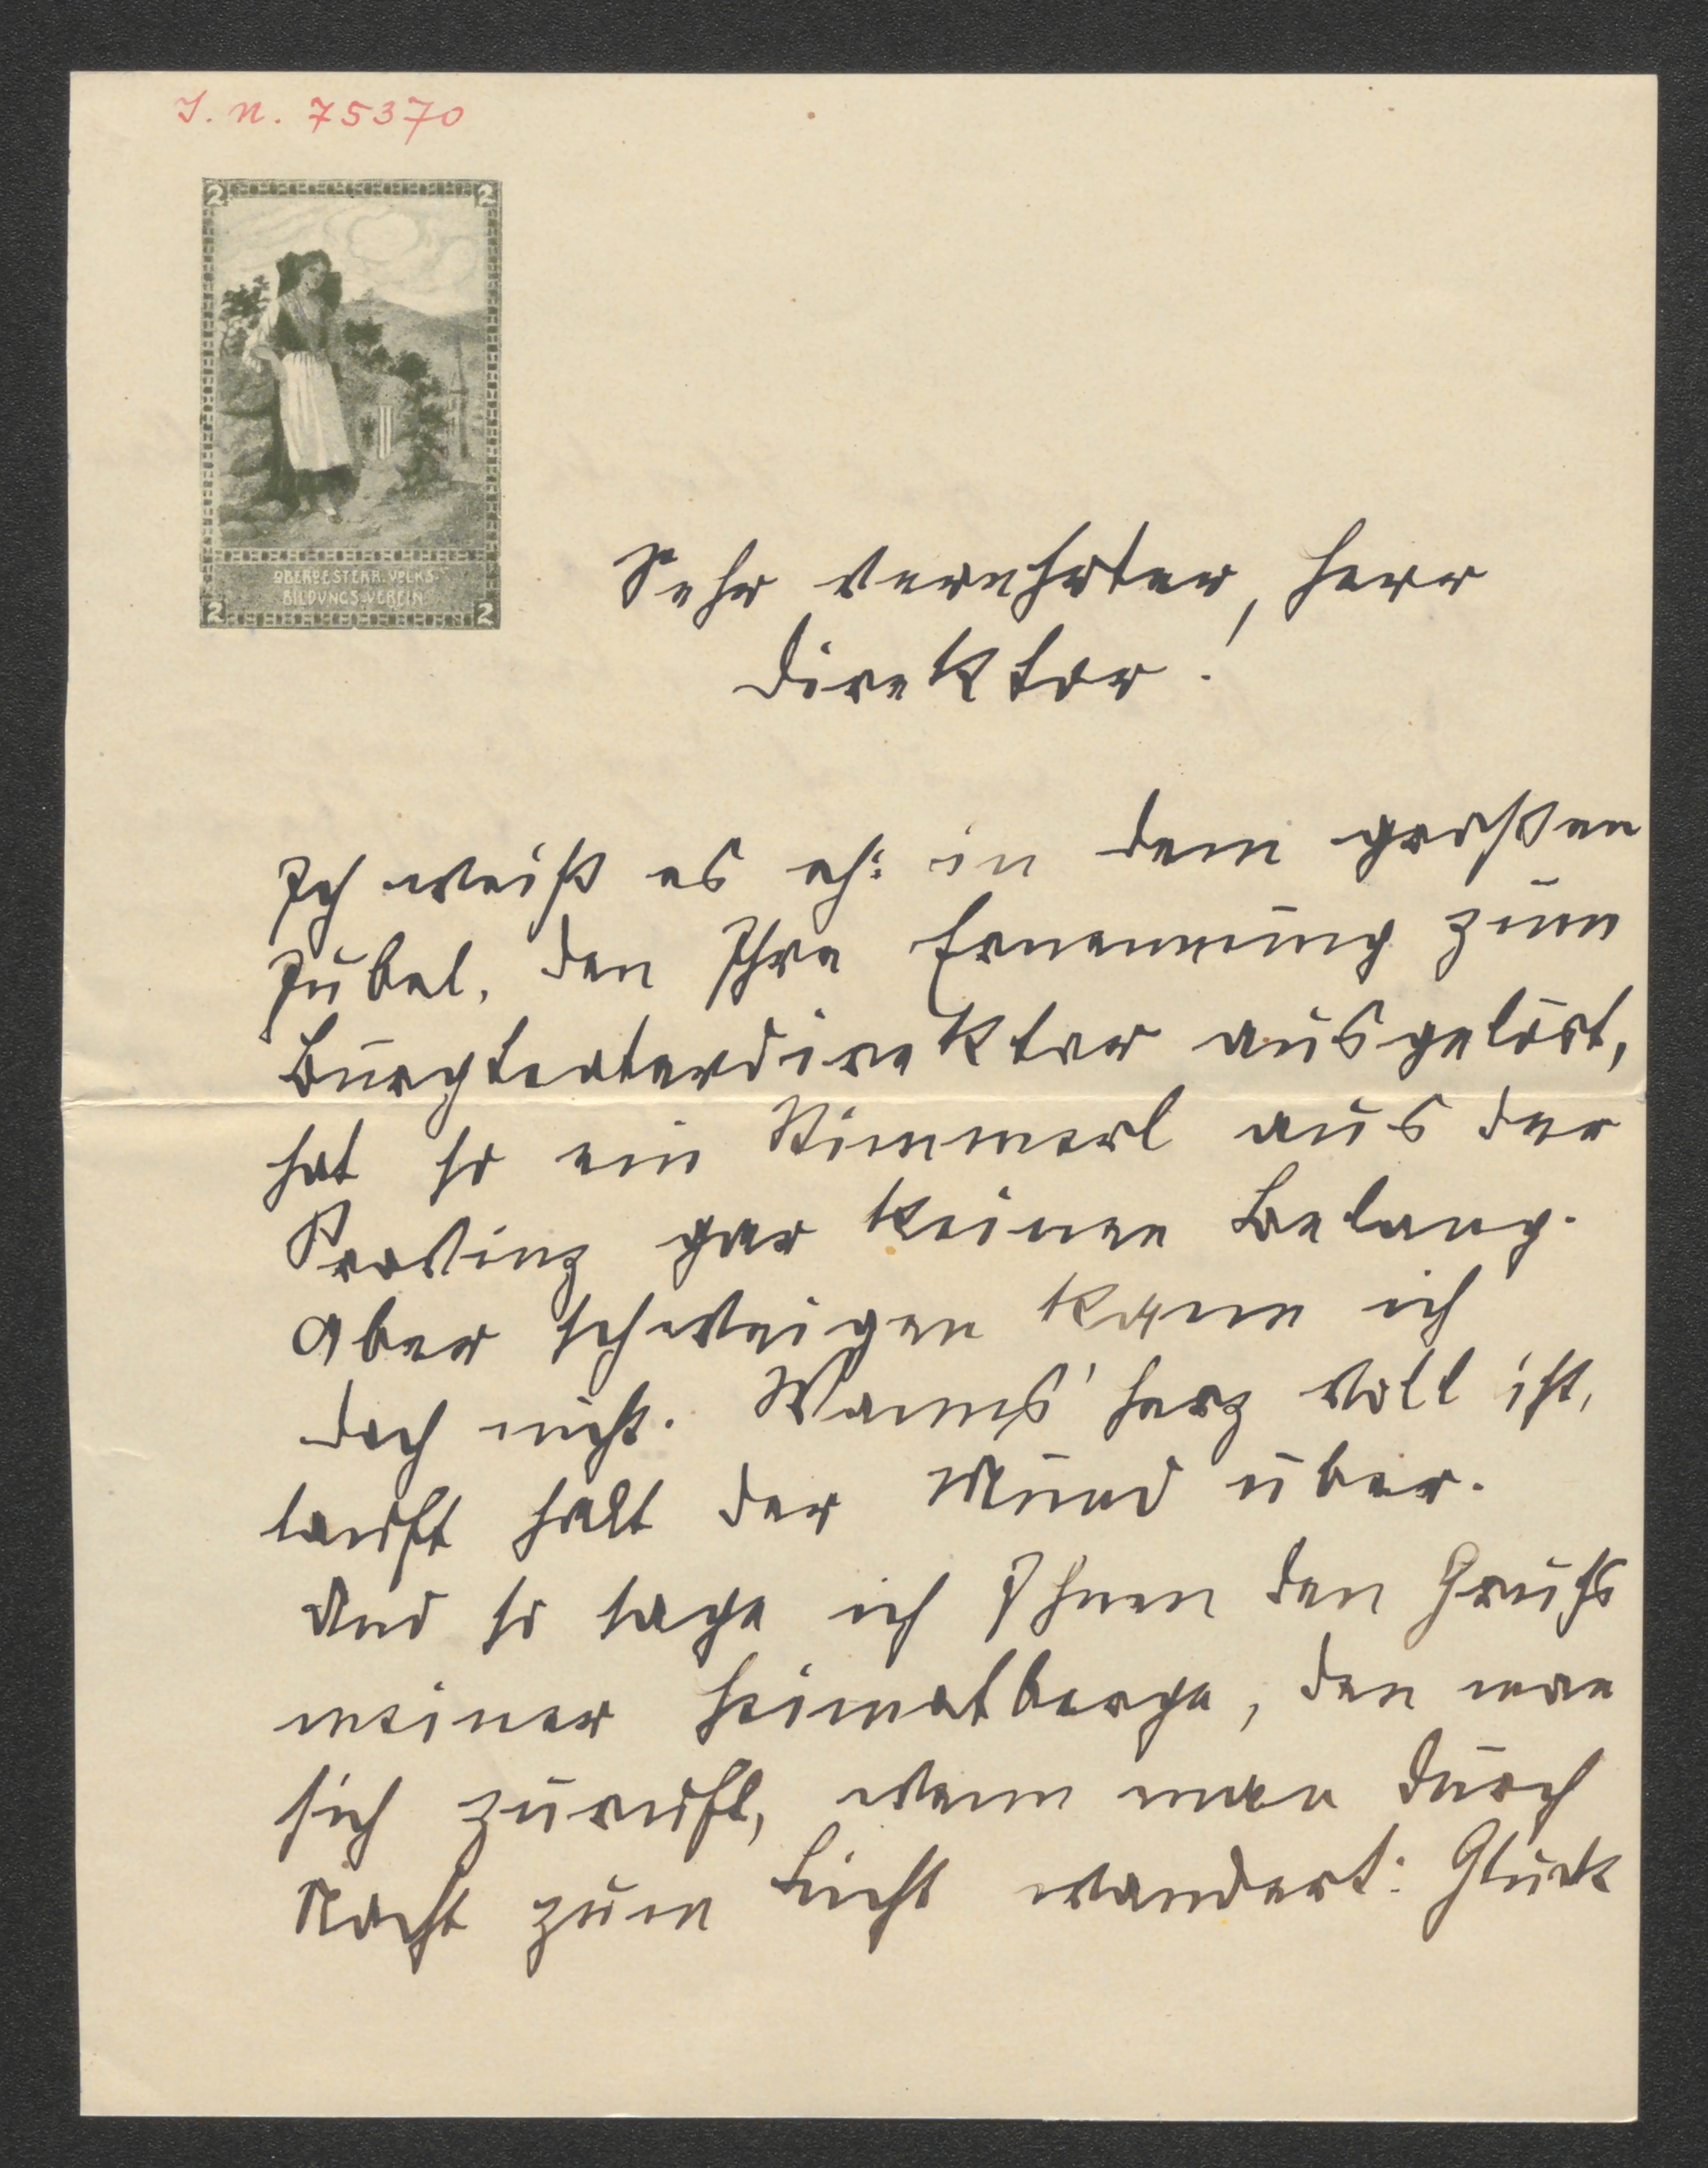 I. N. 75370
2 2
OBEROESTERR. VOLKS-
BILDUNGS-VEREIN
2 2
Sehr verehrter, Herr
Direktor!
Ich weiß es eh: in dem großen
Jubel, den Ihre Ernennung zum
Burgteaterdirektor ausgelöst,
hat so ein Stimmerl aus der
Provinz gar keinen Belang.
Aber schweigen kann ich
doch nicht. Wanns' Herz voll ist,
lauft halt der Mund über.
Und so sage ich Ihnen den Gruß
meiner Heimatberge, den man
sich zuruft, wenn man durch
Nacht zum Licht wandert: Glück